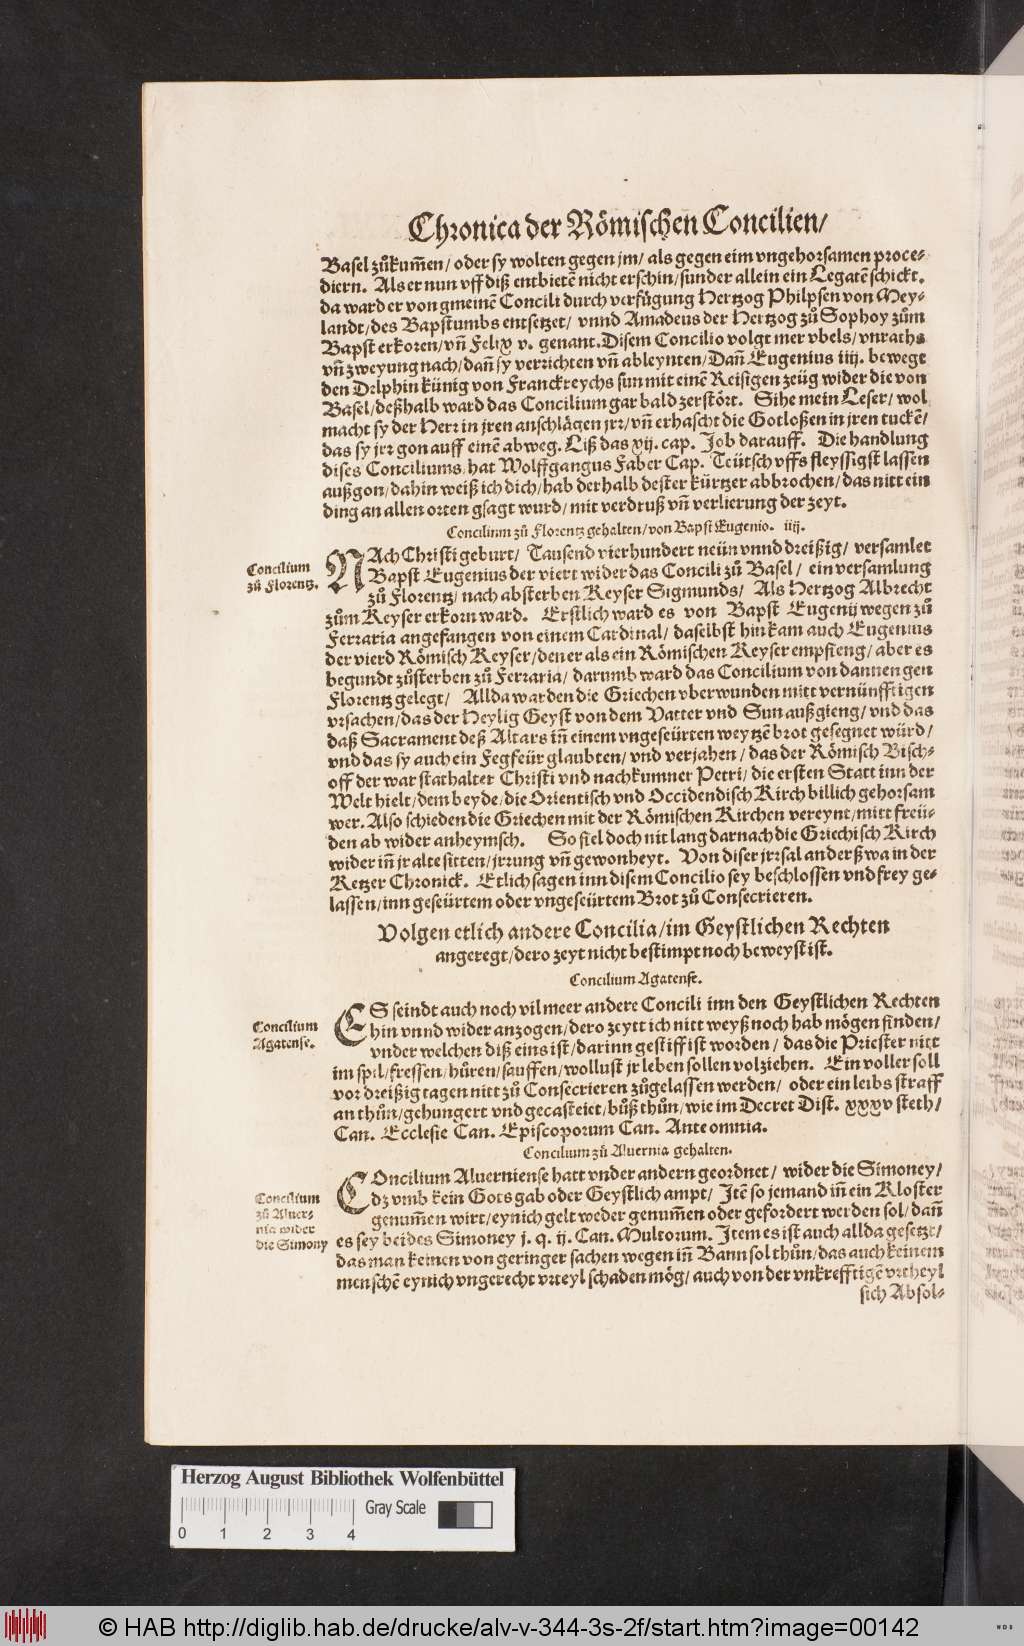 Chronica der Römischen Concilien/
Basel zůkum̃en/ oder sy wolten gegen jm/ als gegen eim vngehorsamen proce-
diern. Als er nun vff diß entbietẽ nicht erschin/ sunder allein ein Legatẽ schickt.
da ward er von gmeinẽ Concili durch verfügung Hertzog Philpsen von Mey-
landt/ des Bapstumbs entsetzet/ vnnd Amadeus der Hertzog zů Sophoy zům
Bapst erkoren/ vñ Felix v. genant. Disem Concilio volgt mer vbels/ vnraths
vñ zweyung nach/ dañ sy verrichten vñ ableynten/ Dañ Eugenius iiij. bewegt
den Delphin künig von Franckreychs sun mit einẽ Reisigen zeüg wider die von
Basel/ deßhalb ward das Concilium gar bald zerstört. Sihe mein Leser/ wol
macht sy der Herr in jren anschlägen jrr/ vñ erhascht die Gotloßen in jren tuckẽ/
das sy jrr gon auff einẽ abweg. Liß das xij. cap. Job darauff. Die handlung
dises Conciliums/ hat Wolffgangus Faber Cap. Teütsch vffs fleyssigst lassen
außgon/ dahin weiß ich dich/ hab derhalb dester kürtzer abbrochen/ das nitt ein
ding an allen orten gsagt wurd/ mit verdruß vñ verlierung der zeyt.
Concilium zů Florentz gehalten/ von Bapst Eugenio. iiij.
Concilium
zů Florentz.
NAch Christi geburt/ Tausend vierhundert neün vnnd dreißig/ versamlet
Bapst Eugenius der viert wider das Concili zů Basel/ ein versamlung
zů Florentz/ nach absterben Keyser Sigmunds/ Als Hertzog Albrecht
zům Keyser erkorn ward. Erstlich ward es von Bapst Eugenij wegen zů
Ferraria angefangen von einem Cardinal/ daselbst hin kam auch Eugenius
der vierd Römisch Keyser/ den er als ein Römischen Keyser empfieng/ aber es
begundt zůsterben zů Ferraria/ darumb ward das Concilium von dannen gen
Florentz gelegt/ Allda warden die Griechen vberwunden mitt vernünfftigen
vrsachen/ das der Heylig Geyst von dem Vatter vnd Sun außgieng/ vnd das
daß Sacrament deß Altars iñ einem vngeseürten weytzẽ brot gesegnet würd/
vnd das sy auch ein Fegfeür glaubten/ vnd verjahen/ das der Römisch Bisch-
off der war stathalter Christi vnd nachkumner Petri/ die ersten Statt inn der
Welt hielt/ dem beyde/ die Orientisch vnd Occidendisch Kirch billich gehorsam
wer. Also schieden die Griechen mit der Römischen Kirchen vereynt/ mitt freü-
den ab wider anheymsch. So fiel doch nit lang darnach die Griechisch Kirch
wider iñ jr alte sitten/ jrrung vñ gewonheyt. Von diser jrrsal anderßwa in der
Ketzer Chronick. Etlich sagen inn disem Concilio sey beschlossen vnd frey ge-
lassen/ inn geseürtem oder vngeseürtem Brot zů Consecrieren.
Volgen etlich andere Concilia/ im Geystlichen Rechten
angeregt/ dero zeyt nicht bestimpt noch beweyst ist.
Concilium Agatense.
Concilium
Agatense.
ES seindt auch noch vil meer andere Concili inn den Geystlichen Rechten
hin vnnd wider anzogen/ dero zeytt ich nitt weyß noch hab mögen finden/
vnder welchen diß eins ist/ darinn gestifft ist worden/ das die Priester nitt
im spil/ fressen/ hůren/ sauffen/ wollust jr leben sollen volziehen. Ein voller soll
vor dreißig tagen nitt zů Consecrieren zůgelassen werden/ oder ein leibs straff
an thůn/ gehungert vnd gecasteiet/ bůß thůn/ wie im Decret Dist. xxxv steth/
Can. Ecclesie Can. Episcoporum Can. Ante omnia.
Concilium zů Aluernia gehalten.
Concilium
zů Aluer-
nia wider
die Simony
COncilium Aluerniense hatt vnder andern geordnet/ wider die Simoney/
dz vmb kein Gots gab oder Geystlich ampt/ Jtẽ so jemand iñ ein Kloster
genum̃en wirt/ eynich gelt weder genum̃en oder gefordert werden sol/ dañ
es sey beides Simoney j. q. ij. Can. Multorum. Item es ist auch allda gesetzt/
das man keinen von geringer sachen wegen iñ Bann sol thůn/ das auch keinem
menschẽ eynich vngerecht vrteyl schaden mög/ auch von der vnkrefftigẽ vrtheyl
sich Absol-
Herzog August Bibliothek Wolfenbüttel
Gray Scale
0 1 2 3 4
© HAB http://diglib.hab.de/drucke/alv-v-344-3s-2f/start.htm?image=00142